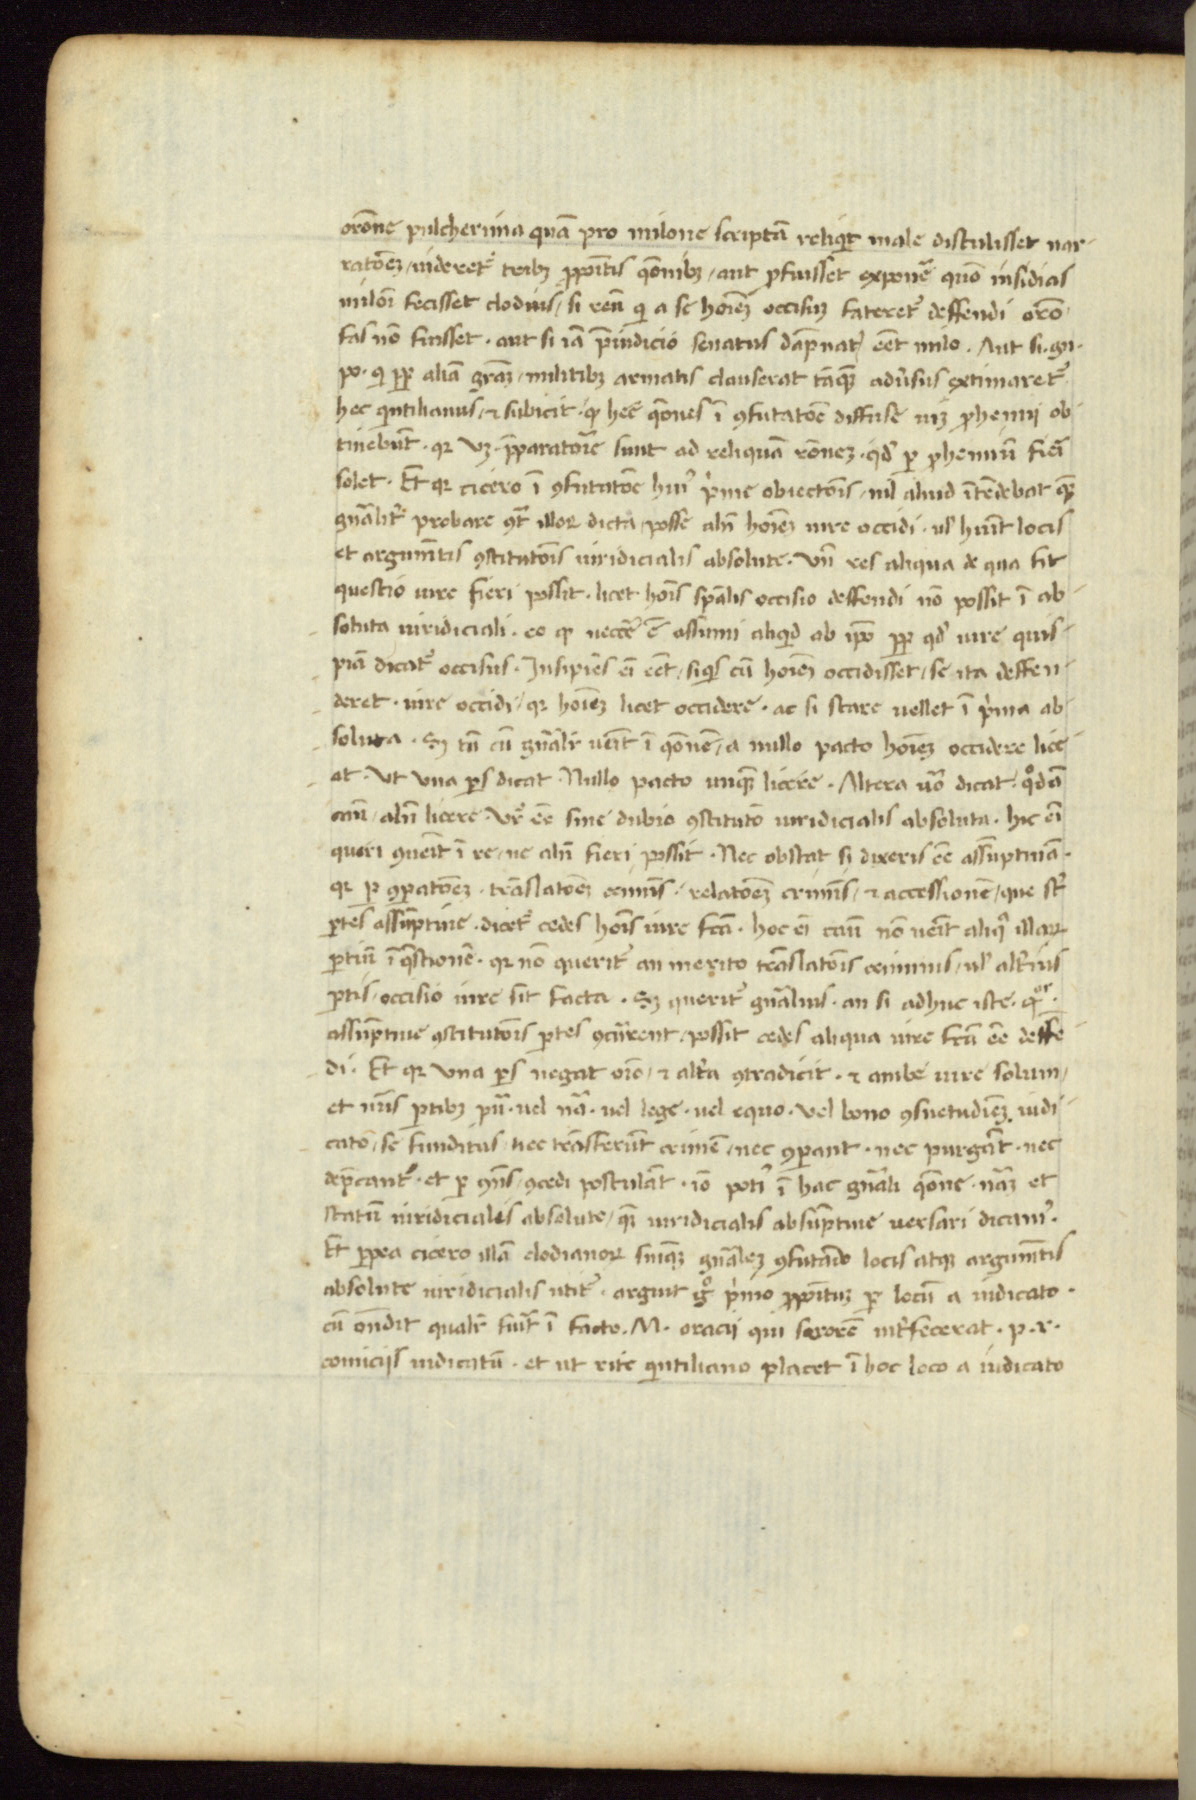 orōne pulcherima quā pro milone scriptā reliqͥt male distulisset nar-
ratōeꝫ / uideretᷣ tribꝫ ꝓpoītis qōnibꝫ / aut ꝓfuisset exponeᷣ quō insidias
miloī fecisset clodius / si reū qͥ a se hoīeꝫ occisuꝫ fateretᷣ deffendi orō
fas nō fuisset · aut si iā p̄iudicio senatus dāpnatᷣ eēt milo . Aut si . gn .
po . qͥ ꝓp aliā grāꝫ / militibꝫ armatis clauserat tāqꝫ adūsus extimaretᷣ
hec qͥntilianus / ⁊ subicit · ꝙ heē qōnes ī ꝯfutatōe diffuse uiꝫ ꝓhemij ob-
tinebūt · qꝛ vꝫ p̄paratorie sunt ad reliquā rōneꝫ · qd̓ ꝑ ꝓhemiū fieī
solet · Et qꝛ cicero ī ꝯfutatōe huiꝰ pͥme obiectōis / nil aliud ītēdebat qꝫ
gnālitᷣ probare ꝯͭ illoꝝ dicta / posse alīn hoīeꝫ iure occidi · ul̓ hiūt locis
et argumētis ꝯstitutōis iuridicialis absolute · Vn̄ res aliqua de qua fit
questio iure fieri possit · licet hoīs spālis occisio deffendi nō possit ī ab-
soluta iuridiciali · eo ꝙ neccē ē assumi aliqͥd ab ip̄o ꝓp qd̓ iure quis-
piā dicatᷣ occisus · Insipiēs eī eēt / siqͥs cū hoīeꝫ occidisset / se ita deffen-
deret · iure occidi / qꝛ hoīeꝫ licet occidere · ac si stare uellet ī pͥma ab-
soluta · Sꝫ tn̄ cū gnālr̄ ueīt ī qōnē / a nullo pacto hoīeꝫ occidere lice-
at · Vt una ꝑs dicat · Nullo pacto unqꝫ licere · Altera uͦ dicat · qͦdā
caū / alīn licere · Vrͤ eē sine dubio ꝯstitutō iuridicialis absoluta · hic eī
queri ꝯueīt ī re / ne alīn fieri possit · Nec obstat si dixeris eē assūptiuā ·
qꝛ ꝑ ꝯꝑatōeꝫ · trāslatōeꝫ crimīs · relatōeꝫ crimīs / ⁊ accessionē / que sᷣt
ꝑtes assūptiue · dicetᷣ cedes hoīs iure fcā · hoc eī caū nō ueīt aliqͣ illaꝝ
ꝑtiū ī qͣstionē · qꝛ nō queritᷣ an merito trāslatōis criminis / ul̓ altᷣius
ꝑtis / occisio iure sit facta · Sꝫ queritᷣ gnālius · an si adhuc iste
assūptiue ꝯstitutōis ꝑtes ꝯcurrent / possit cedes aliqua iure fcā eē deffē
di · Et qꝛ una ꝑs negat oīo / ⁊ altᷣa ꝯtradicit · ⁊ ambe iure solum /
et ꝑtibꝫ · uel nā · uel lege · uel equo · vel bono ꝯsuetudīeꝫ iudi-
catō / se funditus / nec trāsferūt crimē / nec ꝯꝑant · nec purgāt · nec
dep̄cantᷣ · et ꝑ ꝯn̄s / ꝯcedi postulāt · iō potiᷣ ī hac gnāli qōne · nāꝫ et
statū iuridicialis absolute / qꝫ iuridicialis absūptiue uersari dicamᷣ ·
Et ꝓpea cicero illā clodianoꝝ snīaꝫ gnāleꝫ ꝯfutādo locis atqꝫ argumētis
absolute iuridicialis utitᷣ · arguit gͦ pͥmo ꝓpoītuꝫ ꝑ locū a iudicato ·
cū on̄dit qualr̄ fuͥt ī facto . M . oracij qui sororē intᷣfecerat · p . r .
comicijs iudicatū · et ut rite qͥntiliano placet ī hoc loco a iudicato